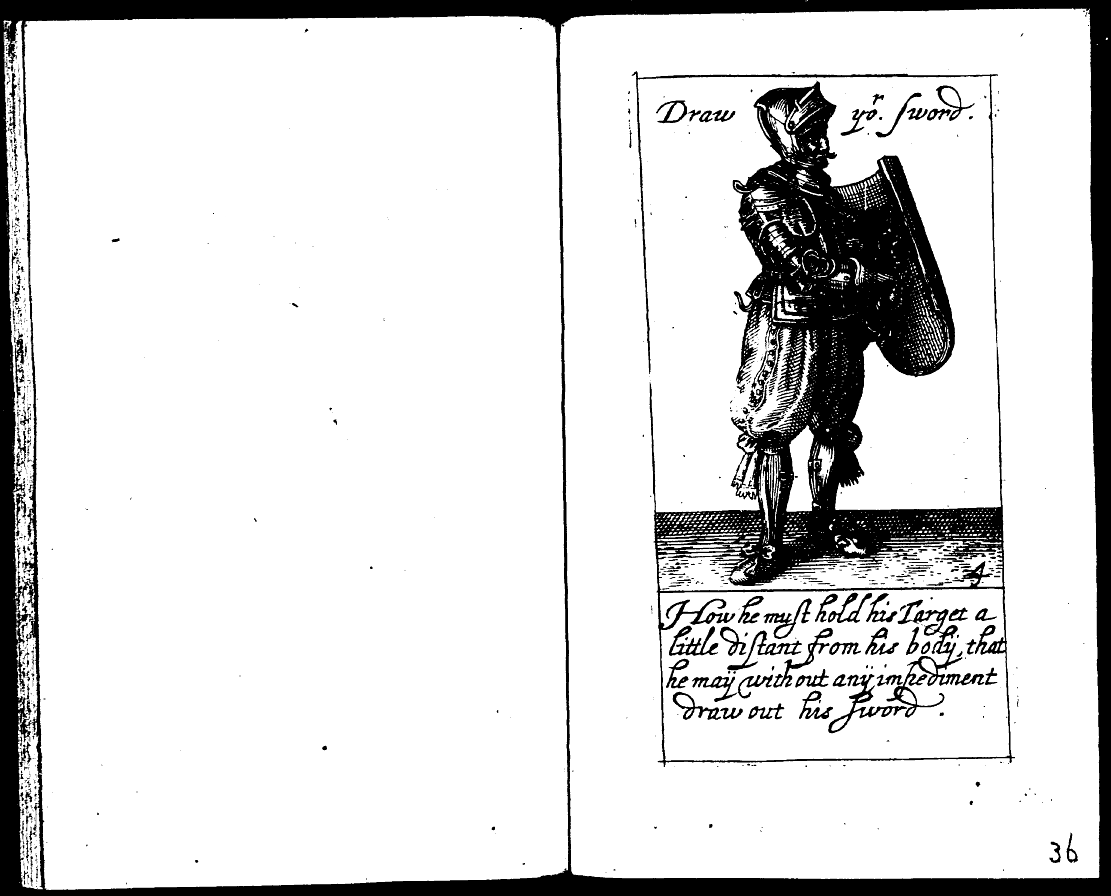 Draw yor. ſword.
4
How he muſt hold his Target a
little diſtant from his bodÿ, that
he maÿ without anÿ impediment
draw out his ſword.
36